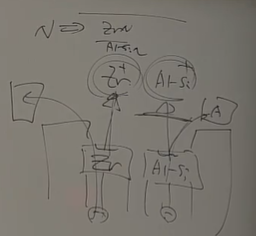 N ⇒ ZrN
Al-Si
Zr+ Al-Si+
A
Zr Al-Si